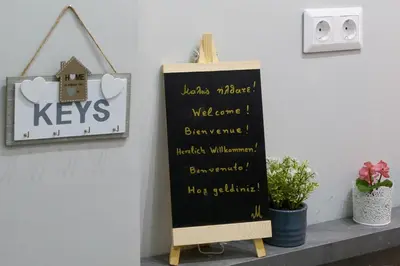 KEYS
Μαλώς ήλθατε!
Welcome!
Bienvenue!
Herzlich Willkommen!
Benvenuto!
Hoş geldiniz!
M